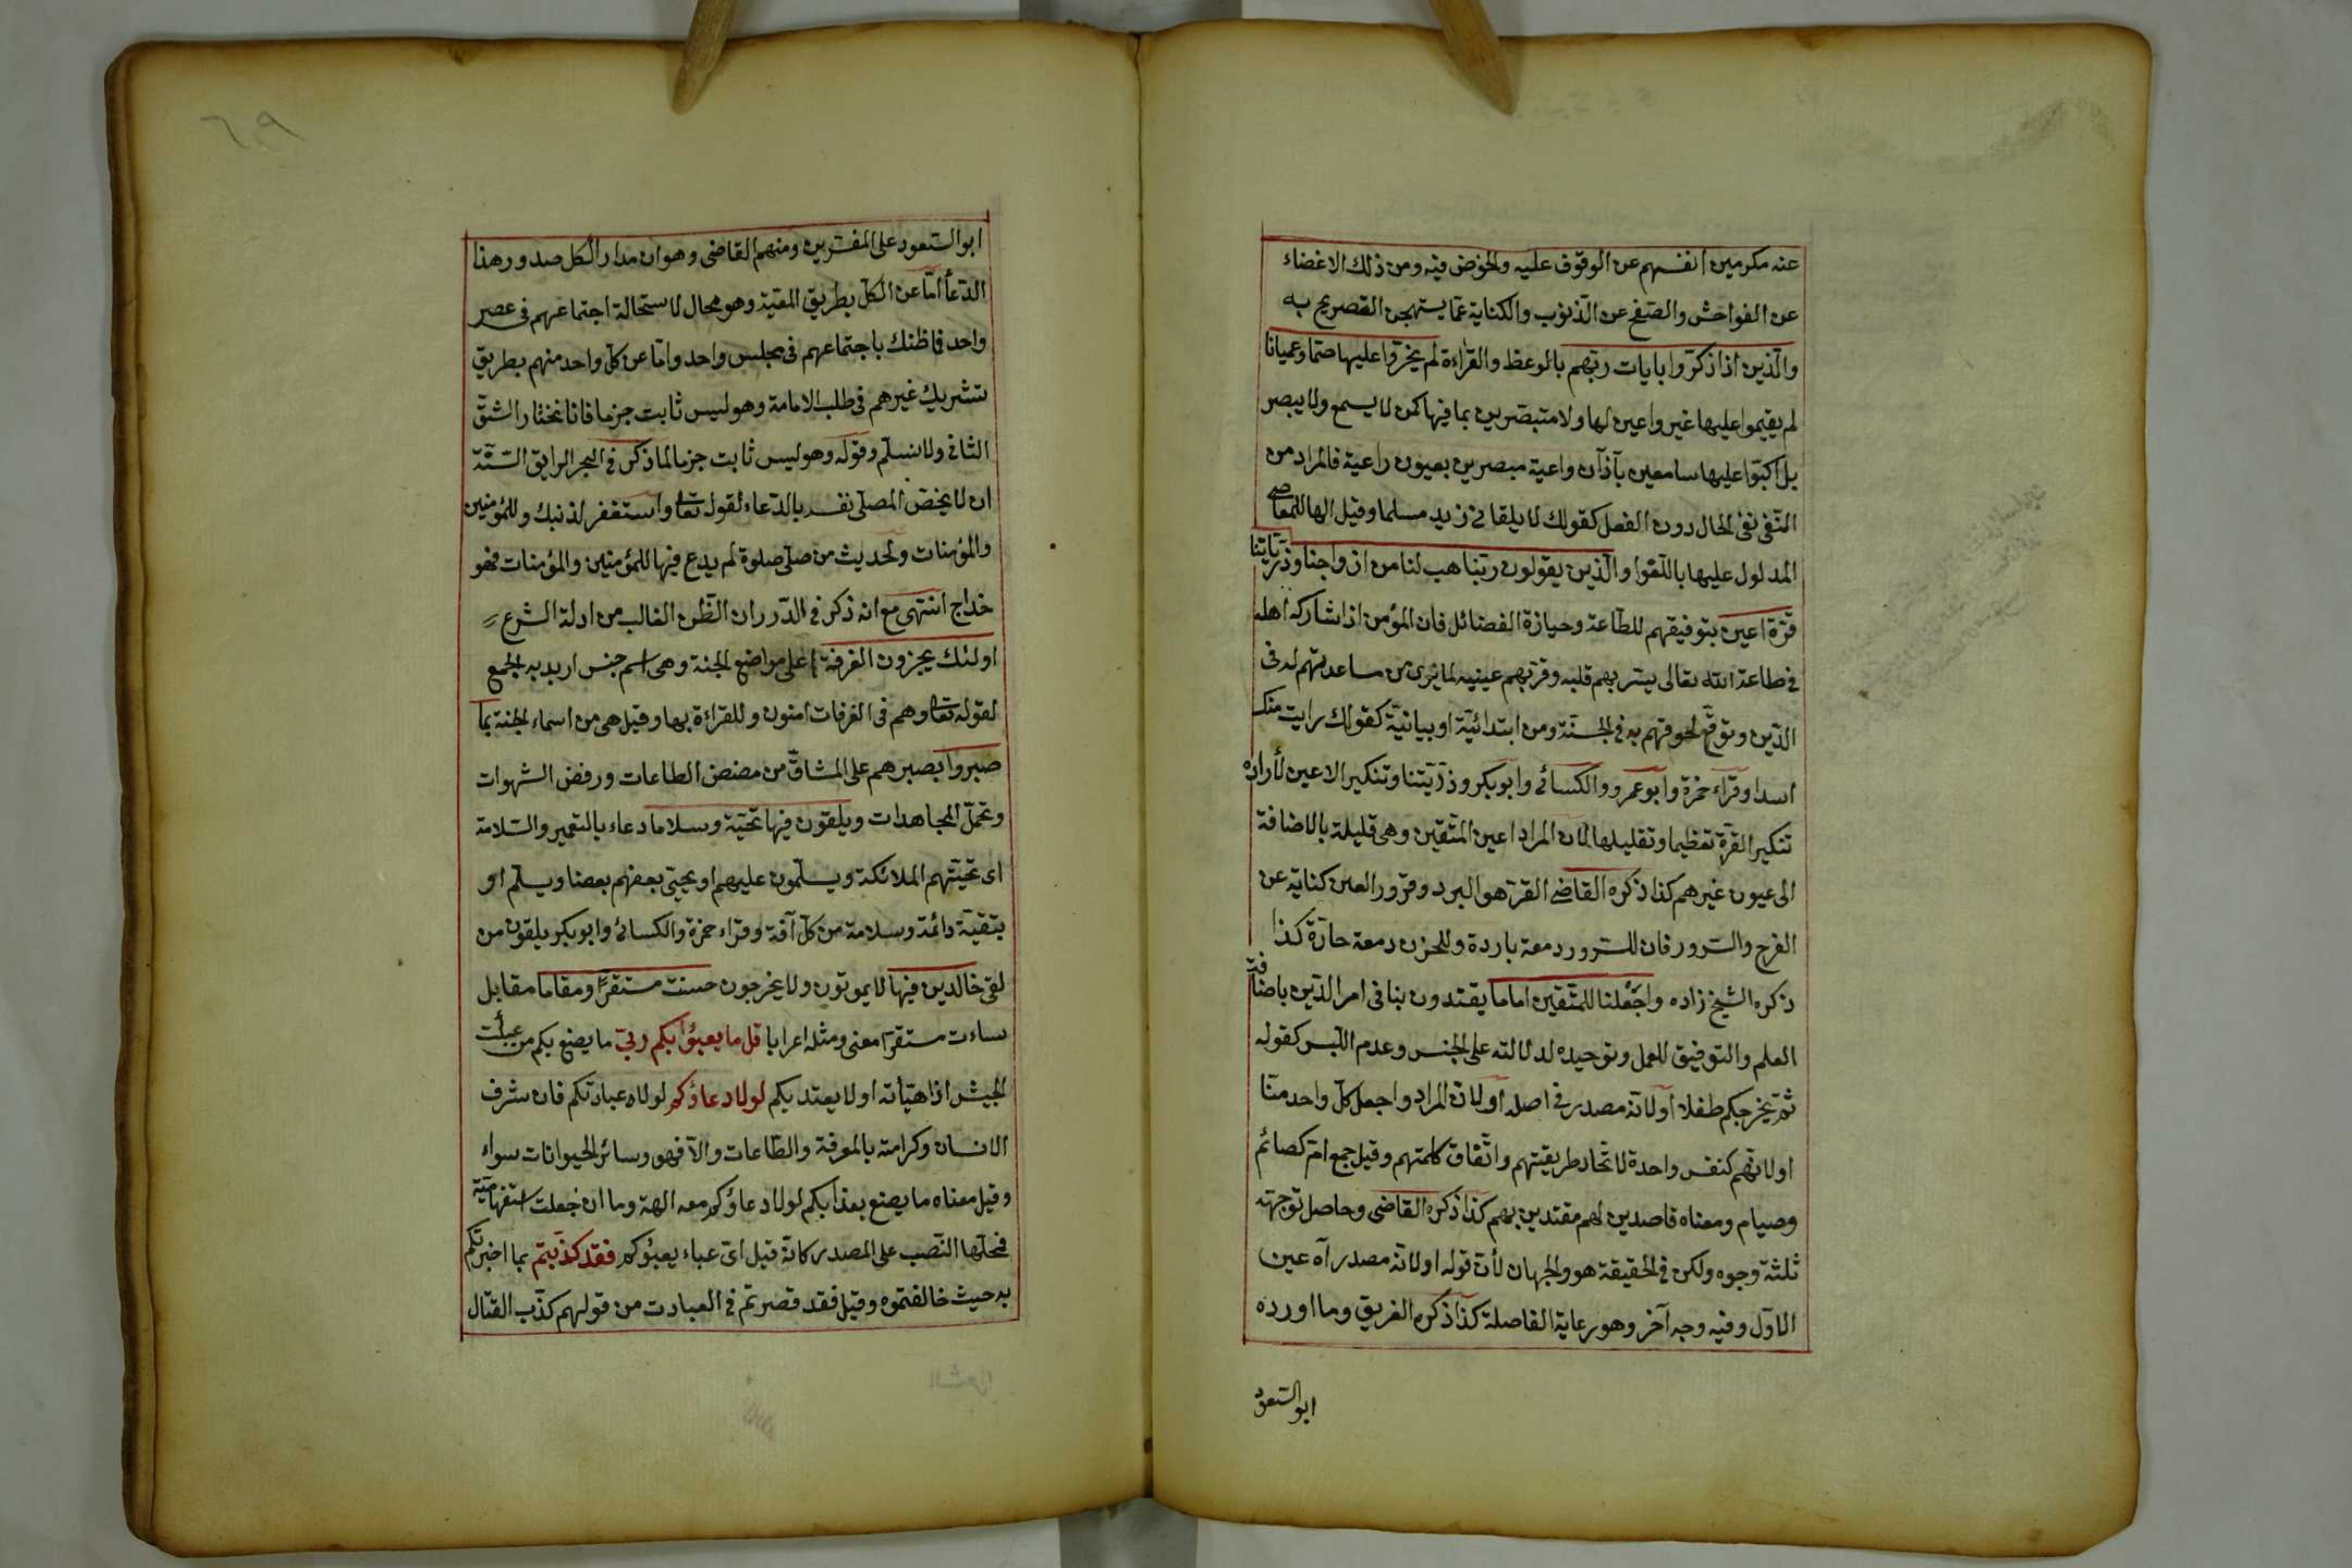 عنه مكرمين انفسهم عن الوقوف عليه والخوض فيه ومن ذلك الاغضاء
عن الفواحش والصفح عن الذنوب والكناية عما يستهجن التصريح به
والذين اذا ذكروا بايات ربهم بالوعظ والقراءة لم يخروا عليها صما وعميانا
لم يقيموا عليها غير واعين لها ولا متبصرين بما فيها كمن لا يسمع ولا يبصر
بل اكبوا عليها سامعين بآذان واعية مبصرين بعيون راعية فالمراد من
النفى نفى الحال دون الفعل كقولك لا يلقانى زيد مسلما وقيل الها للمعاصى
المدلول عليها باللغوا والذين يقولون ربنا هب لنا من ازواجنا وذرياتنا
قرة اعين بتوفيقهم للطاعة وحيازة الفضائل فان المؤمن اذا شاركه اهله
فى طاعة الله تعالى يسر بهم قلبه وقر بهم عينيه لما يرى من ساعدتهم له فى
الدين وتوقع لحوقهم به فى الجنة ومن ابتدائية او بيانية كقولك رايت منك
اسدا وقراء حمزة وابو عمرو والكسائى وابو بكر وذريتنا وتنكير الاعين لأراده
تنكير القرة تعظيما وتقليلها لان المراد اعين المتقين وهى قليلة بالاضافة
الى عيون غيرهم كذا ذكره القاضى القرة هو البرد وقرور العين كناية عن
الفرح والسرور فان للسرور دمعة باردة وللحزن دمعة حارة كذا
ذكره الشيخ زاده واجعلنا للمتقين اماما يقتدون بنا فى امر الدين باضافة
العلم والتوفيق للعمل وتوحيده لدلالته على الجنس وعدم اللبس كقوله
ثم يخرجكم طفلا او لانه مصدر فى اصله او لان المراد واجعل كل واحد منا
او لانهم كنفس واحدة لاتحاد طريقتهم واتفاق كلمتهم وقيل جمع ام كصائم
وصيام ومعناه قاصدين لهم مقتدين بهم كذا ذكره القاضى وحاصل توجهته
ثلثة وجوه ولكن فى الحقيقة هو والجهان لأن قوله او لانه مصدر آه عين
الاول وفيه وجه آخر وهو رعاية الفاصلة كذا ذكره الفريق وما اورده
ابو السعود
٦٩
ابو السعود على المفسرين ومنهم القاضى وهو ان مدار الكل صدور هذا
الدعأ اما عن الكل بطريق المعية وهو محال لاستحالة اجتماعهم فى عصر
واحد فاظنك باجتماعهم فى مجلس واحد واما عن كل واحد منهم بطريق
تشريك غيرهم فى طلب الامامة وهو ليس ثابت جزما فانا نختار الشق
الثانى ولا نسلم وقوله وهو ليس ثابت جزما لما ذكر فى البحر الرايق السنة
ان لا يخص المصلى نفسه بالدعاء لقوله تعا واستغفر لذنبك وللمؤمنين
والمؤمنات ولحديث من صلى صلوة لم يدع فيها للمؤمنين والمؤمنات فهو
خداج انتهى مع انه ذكر فى الدرر ان الظن الغالب من ادلة الشرع
اولئك يجزون الغرفة اعلى مواضع الجنة وهى اسم جنس اريد به الجمع
لقوله تعا وهم فى الغرفات امنون وللقراءة بها وقيل هى من اسماء الجنة بما
صبروا بصبرهم على المشاق من مضض الطاعات ورفض الشهوات
وتحمل المجاهدات ويلقون فيها تحية وسلاما دعاء بالتعمير والسلامة
اى تحيتهم الملائكة ويسلمون عليهم او يحيى بعضهم بعضا ويسلم او
بتقية دائمة وسلامة من كل آفة وقراء حمزة والكسائى وابو بكر يلقون من
لقى خالدين فيها لا يموتون ولا يخرجون حسنت مستقرا ومقاما مقابل
ساءت مستقرا معنى ومثله اعرابا قل ما يعبؤا بكم ربى ما يصنع بكم من عبأت
الجيش اذا هيأته او لا يعتد بكم لولا دعاؤكم لولا عبادتكم فان شرف
الانسان وكرامته بالمعرفة والطاعات والا فهو وسائر الحيوانات سواء
وقيل معناه ما يصنع بعذابكم لولا دعاؤكم معه الهة وما ان جعلت استفهامية
فمحلها النصب على المصدر كانه قيل اى عباء يعبؤكم فقد كذبتم بما اخبرتكم
به حيث خالفتموه وقيل فقد قصرتم فى العبادت من قولهم كذب القتال